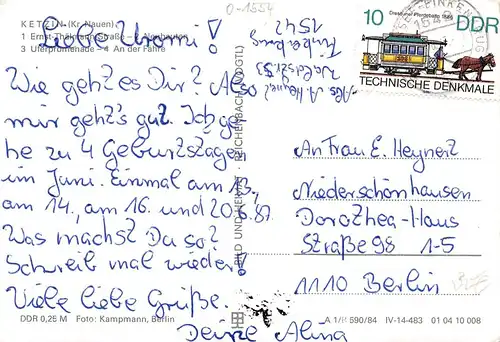 KETZIN (Kr. Nauen)
1 Ernst-Thälmann-Straße
3 Uferpromenade - 4 An der Fähre
Liebe Ummi!
Wie geht es Dir? Also
mir geht's gut. Ich ge
he zu 4 Geburtstagen
im Juni. Einmal am 13.,
am 14., am 16. und 20.6.87.
Was machst Du so?
Schreib mal wieder!
Viele liebe Grüße.
Deine Alina
DDR 0,25 M Foto: Kampmann, Berlin
BILD UND HEIMAT REICHENBACH (VOGTL)
A 1/B 590/84 IV-14-483 01 04 10 008
0-1554
Abs. A. Heynert
Waldstr. 53
Finkenkrug
1542
10 DDR
Dresdner Pferdebahn 1886
TECHNISCHE DENKMALE
An Frau E. Heynert
Niederschönhausen
Dorothea-Haus
Straße 98 1-5
1110 Berlin